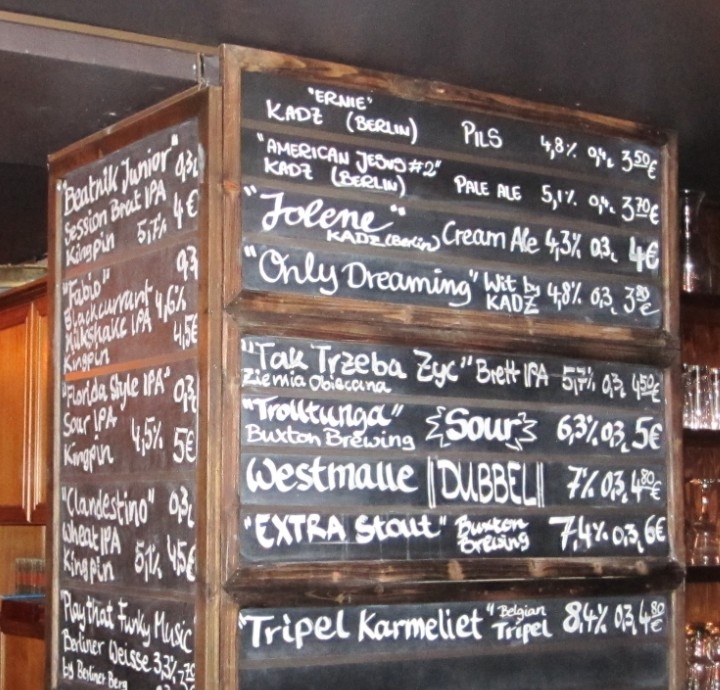 "Beatnik Junior" 0,3L
Session Breut IPA 4€
Kingpin 5,7%
"Fabio" 0,3
Blackcurrant 4,6%
Milkshake IPA 4,5€
Kingpin
"Florida Style IPA" 0,3L
Sour IPA
Kingpin 4,5% 5€
"Clandestino" 0,3L
Wheat IPA
Kingpin 5,1% 4,5€
"Play that Funky Music
Berliner Weisse 3,3%
by Berliner Berg
"ERNIE"
KADZ (BERLIN) PILS 4,8% 0,4L 3,50€
"AMERICAN JESUS #2"
KADZ (BERLIN) PALE ALE 5,1% 0,4L 3,70€
"Jolene"
KADZ (Berlin) Cream Ale 4,3% 0,3L 4€
"Only Dreaming" Wit by KADZ 4,8% 0,3L 3,80€
"Tak Trzeba Zyc" Brett IPA 5,7% 0,3L 4,50€
Ziemia Obiecana
"Trolltunga" Sour 6,3% 0,3L 5€
Buxton Brewing
Westmalle DUBBEL 7% 0,3L 4,80€
"EXTRA Stout" Buxton Brewing 7,4% 0,3L 6€
"Tripel Karmeliet" Belgian Tripel 8,4% 0,3L 4,80€